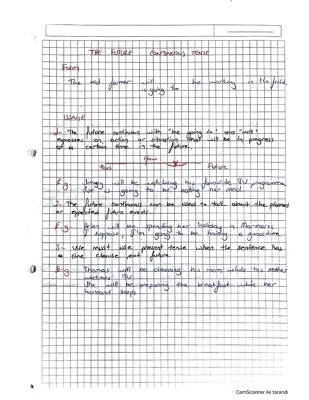 THE FUTURE CONTINUOUS TENSE
Form
The old farmer will be working in the field
is going to
USAGE
1- The future continuous with "be going to" and "will"
expresses an action or situation that will be in progress
at a certain time in the future.
Now
Future
E.g. will be watching his favourite TV programme
is going to be eating her meal
2- The future continuous can be used to talk about the planned
or expected future events.
E.g. Helen will be spending her holiday in Marmaris
I suppose, I'm going to be having a good time
3- We must use present tense when the sentence has
a time clause not future.
E.g. Thomas will be cleaning his room while his mother
watches TV
She will be preparing the breakfast while her
husband sleeps
CamScanner ile tarandı